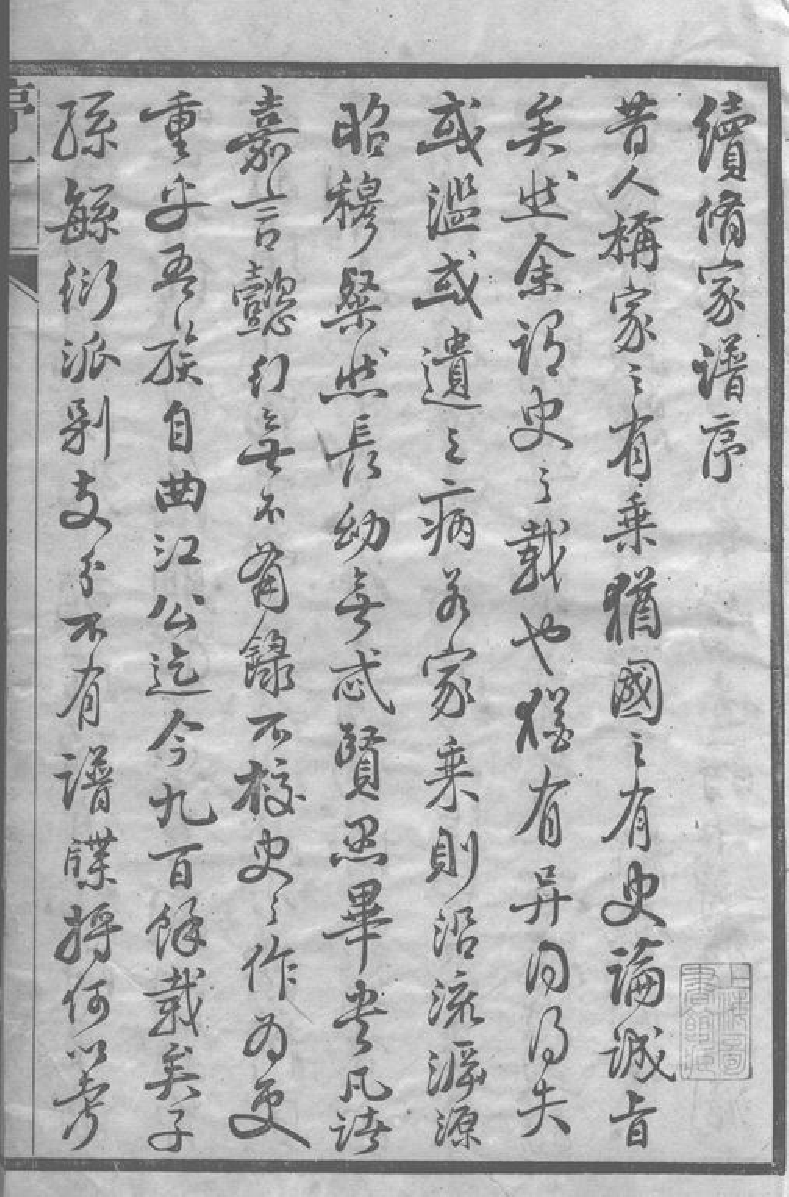 續脩家譜序
昔人稱家之有乘猶國之有史論誠旨
矣然余謂史之載也猶有異同得失
或濫或遺之病若家乘則沿流溯源
昭穆粲然長幼無忒賢愚畢書凡諸
嘉言懿行無不有錄不較史之作為更
重乎吾族自曲江公迄今九百餘載矣子
孫繇衍派別支分不有譜牒將何以考
序一
上海圖書館藏